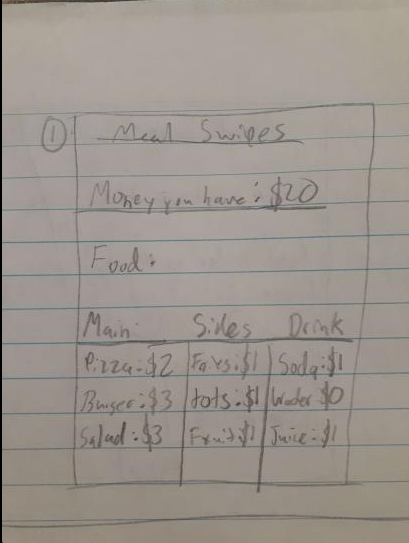 ①
Meal Swipes
Money you have: $20
Food:
Main: Sides Drink
Pizza: $2 Fries: $1 Soda: $1
Burger: $3 tots: $1 Water $0
Salad: $3 Fruit: $1 Juice: $1